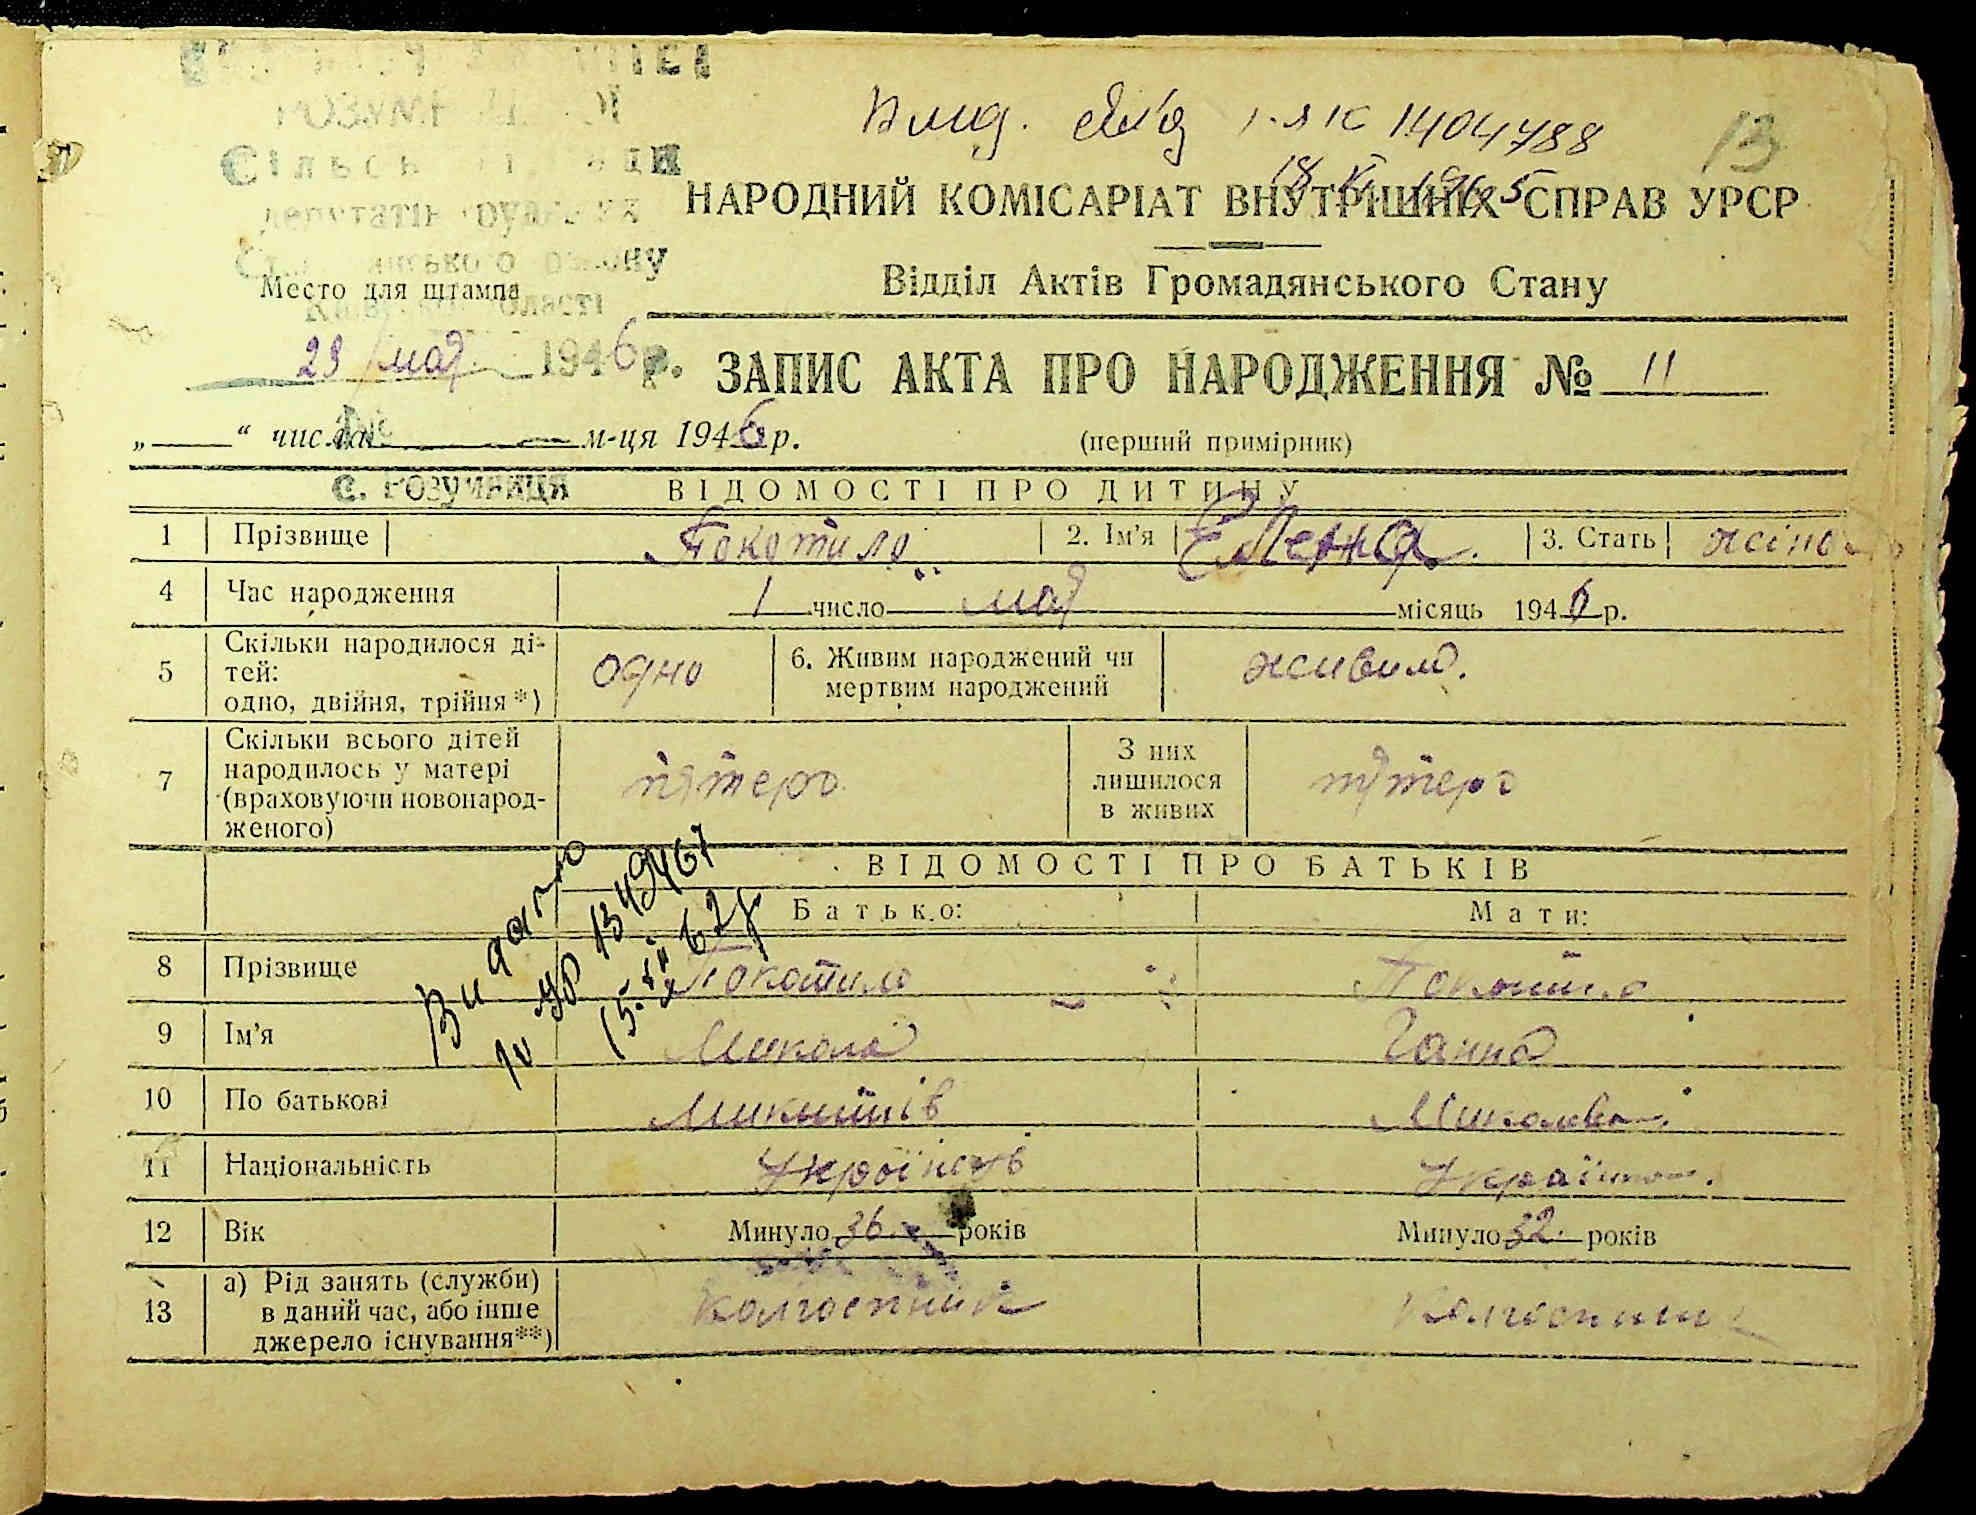 Сільської ради
депутатів трудящих
району
Київської області
Место для штампа
1404788
13
18 VI 1965
НАРОДНИЙ КОМІСАРІАТ ВНУТРІШНІХ СПРАВ УРСР
Відділ Актів Громадянського Стану
29 мая 1946 р. ЗАПИС АКТА ПРО НАРОДЖЕННЯ № 11
„ “ числа м-ця 1946 р. (перший примірник)
с. Розумниця
ВІДОМОСТІ ПРО ДИТИНУ
1 Прізвище Покотило 2. Ім'я Елена. 3. Стать жіноч
4 Час народження 1 число мая місяць 1946 р.
5 Скільки народилося ді-
тей:
одно, двійня, трійня*) одно 6. Живим народжений чи
мертвим народжений живим.
7 Скільки всього дітей
народилось у матері
(враховуючи новонарод-
женого) пятеро З них
лишилося
в живих пятеро
ВІДОМОСТІ ПРО БАТЬКІВ
Батько: Мати:
Видано
8 Прізвище Покотило Покотило
9 Ім'я Микола Ганна
10 По батькові Микитів Миколаєвн.
11 Національність Українець Українка.
12 Вік Минуло 36 років Минуло 32 років
13 а) Рід занять (служби)
в даний час, або інше
джерело існування**) Колгоспник Колгоспниця